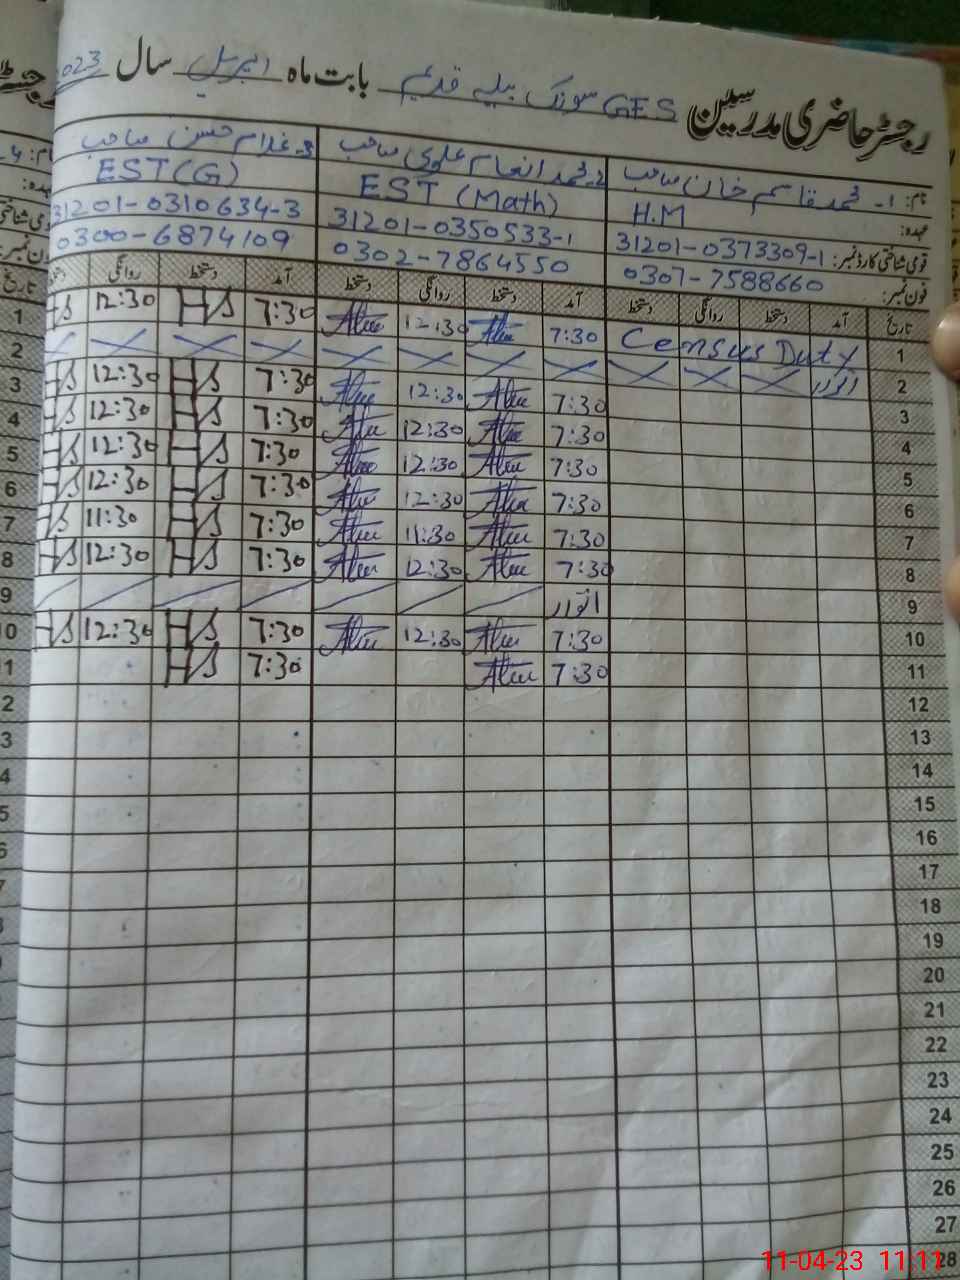 رجسٹر حاضری مدرسین GES سونک بیلہ قدیم بابت ماہ اپریل سال 2023
نام: 1۔ محمد قاسم خان صاحب
عہدہ: H.M
قومی شناختی کارڈ نمبر: 31201-0373309-1
فون نمبر: 0307-7588660
2۔ محمد انعام علوی صاحب
EST (Math)
31201-0350533-1
0302-7864550
3۔ غلام حسن صاحب
EST(G)
31201-0310634-3
0300-6874109
تاریخ آمد دستخط روانگی دستخط آمد دستخط روانگی دستخط آمد دستخط روانگی دستخط
1 Census Duty 7:30 12:30 7:30 HS 12:30 HS
2 اتوار
3 7:30 12:30 7:30 HS 12:30 HS
4 7:30 12:30 7:30 HS 12:30 HS
5 7:30 12:30 7:30 HS 12:30 HS
6 7:30 12:30 7:30 HS 12:30 HS
7 7:30 11:30 7:30 HS 11:30 HS
8 7:30 12:30 7:30 HS 12:30 HS
9 اتوار
10 7:30 12:30 7:30 HS 12:30 HS
11 7:30 7:30 HS
12
13
14
15
16
17
18
19
20
21
22
23
24
25
26
27
28
11-04-23 11:11